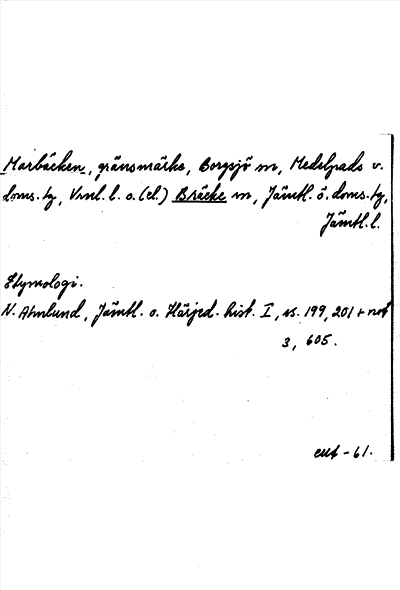 Marbäcken, gränsmärke, Borgsjö sn, Medelpads v.
doms.tg, Vnl. l. o. (el.) Bräcke sn, Jämtl. ö. doms.tg,
Jämtl. l.
Etymologi.
N. Ahnlund, Jämtl. o. Härjed. hist. I, ss. 199, 201 + not
3, 605.
-61.